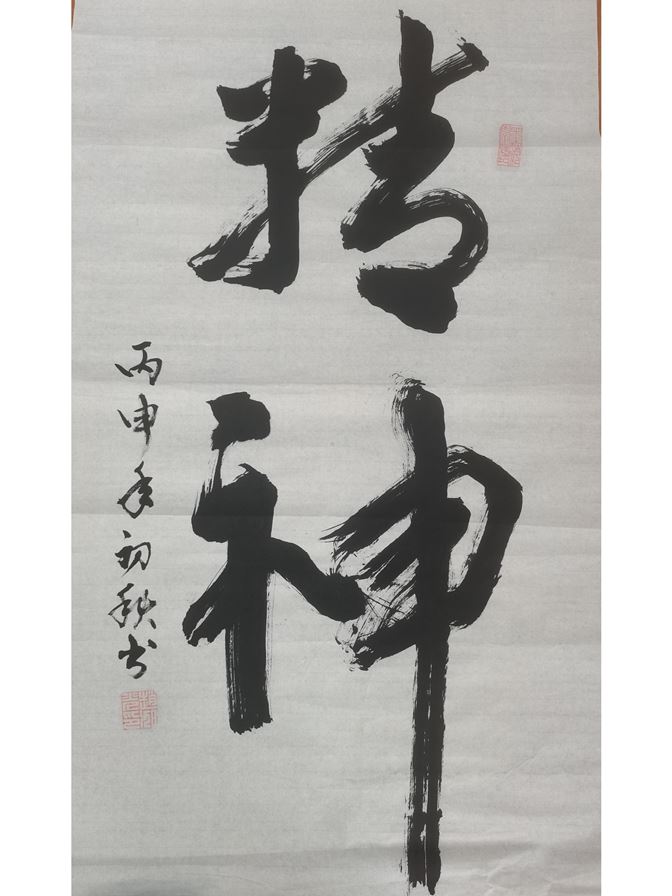 精神
丙申年初秋书